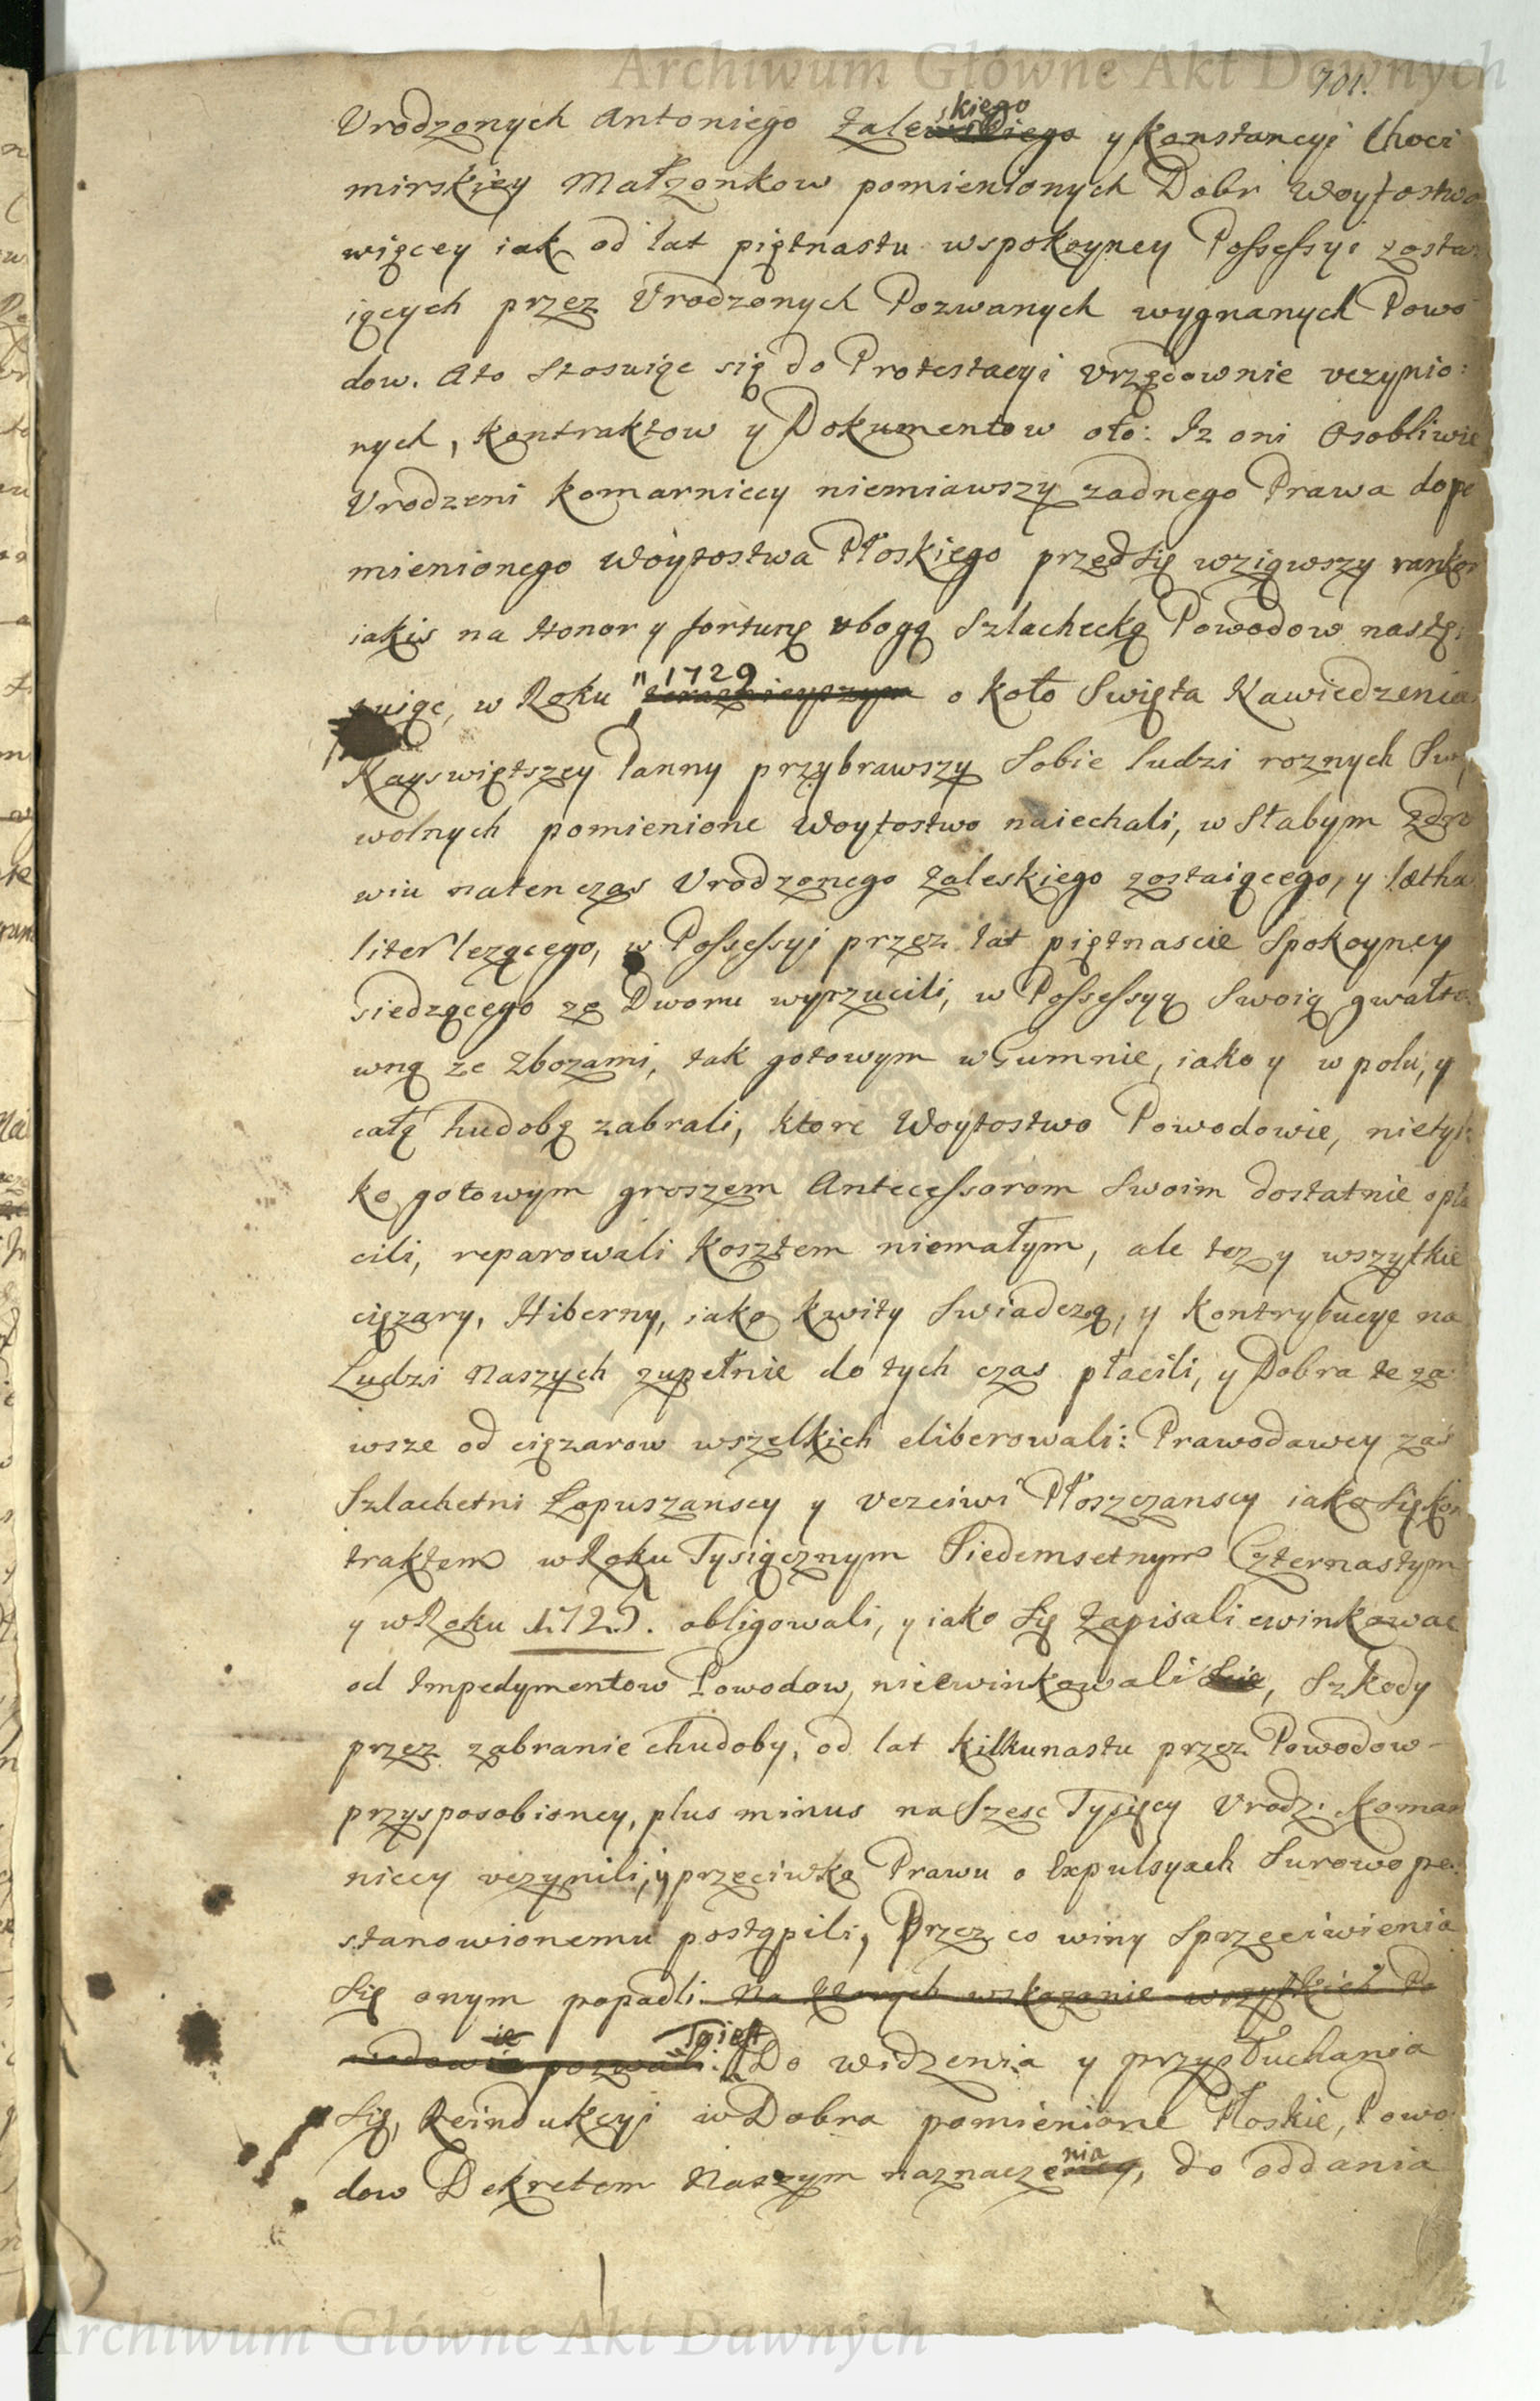 Archiwum Główne Akt Dawnych
701.
skiego
Urodzonych Antoniego Zalewskiego y Konstancyi Choci
mirskiey Małzonkow pomienionych Dobr Woytostwo
więcey iak od lat piętnastu wspokoyney Possessyi zosta:
iących przez Urodzonych Pozwanych wygnanych Powo
dow. Ato Stosuiąc się do Protestacyi Urzędownie uczynio:
nych, Kontraktow y Dokumentow oto: Iz oni Osobliwie
Urodzeni Komarniccy niemiawszy zadnego Prawa dopo
mienionego Woytostwa Płoskiego przedSię wziąwszy rankor
iakis na Honor y fortunę ubogą Szlachecką Powodow nastę:
1729
puiąc, w Roku teraznieyszym około Swięta Nawiedzenia
Nayswiętszey Panny przybrawszy Sobie ludzi roznych Swy
wolnych pomienione Woytostwo naiechali, w Słabym Zdro
wiu natenczas Urodzonego Zaleskiego zostaiącego, y lætha
liter lezącego, w Possessyi przez lat piętnascie Spokoyney
Siedzącego ze Dworu wyrzucili, w Possessyą Swoią gwałto:
wną ze Zbozami, tak gotowym w Gumnie, iako y w polu, y
całą hudobą zabrali, ktore Woytostwo Powodowie, nietyl:
ko gotowym groszem Antecessorom Swoim dostatnie opła
cili, reparowali Kosztem niemałym, ale tez y wszytkie
cięzary, Hiberny, iako Kwity Swiadczą, y Kontrybucye na
Ludzi Naszych zupełnie do tych czas płacili, y Dobra te za
wsze od cięzarow wszelkich eliberowali: Prawodawcy zas
Szlachetni Łopuszanscy y Uczciwi Płoszczanscy iako Się Kon
traktem w Roku Tysiącznym Siedemsetnym Czternastym
y w Roku 1725. obligowali, y iako Się Zapisali ewinkowac
od Impedymentow Powodow, nieewinkowali, Szkody
przez zabranie Chudoby, od lat kilkunastu przez Powodow
przysposobioney, plus minus na Szesc Tysięcy Urodz: Komar
niccy uczynili, y przeciwko Prawu o Expulsyach Surowo po:
stanowionemu postąpili, Przez co winy Sprzeciwienia
Się onym popadli. Na ktorych wskazanie wszytkich Po
ie Tgiest
wodowie pozwali: Do widzenia y przysłuchania
Się, Reindukcyi w Dobra pomienione Płoskie, Powo
nia
dow Dekretem Naszym naznaczoney, do oddania
Archiwum Główne Akt Dawnych